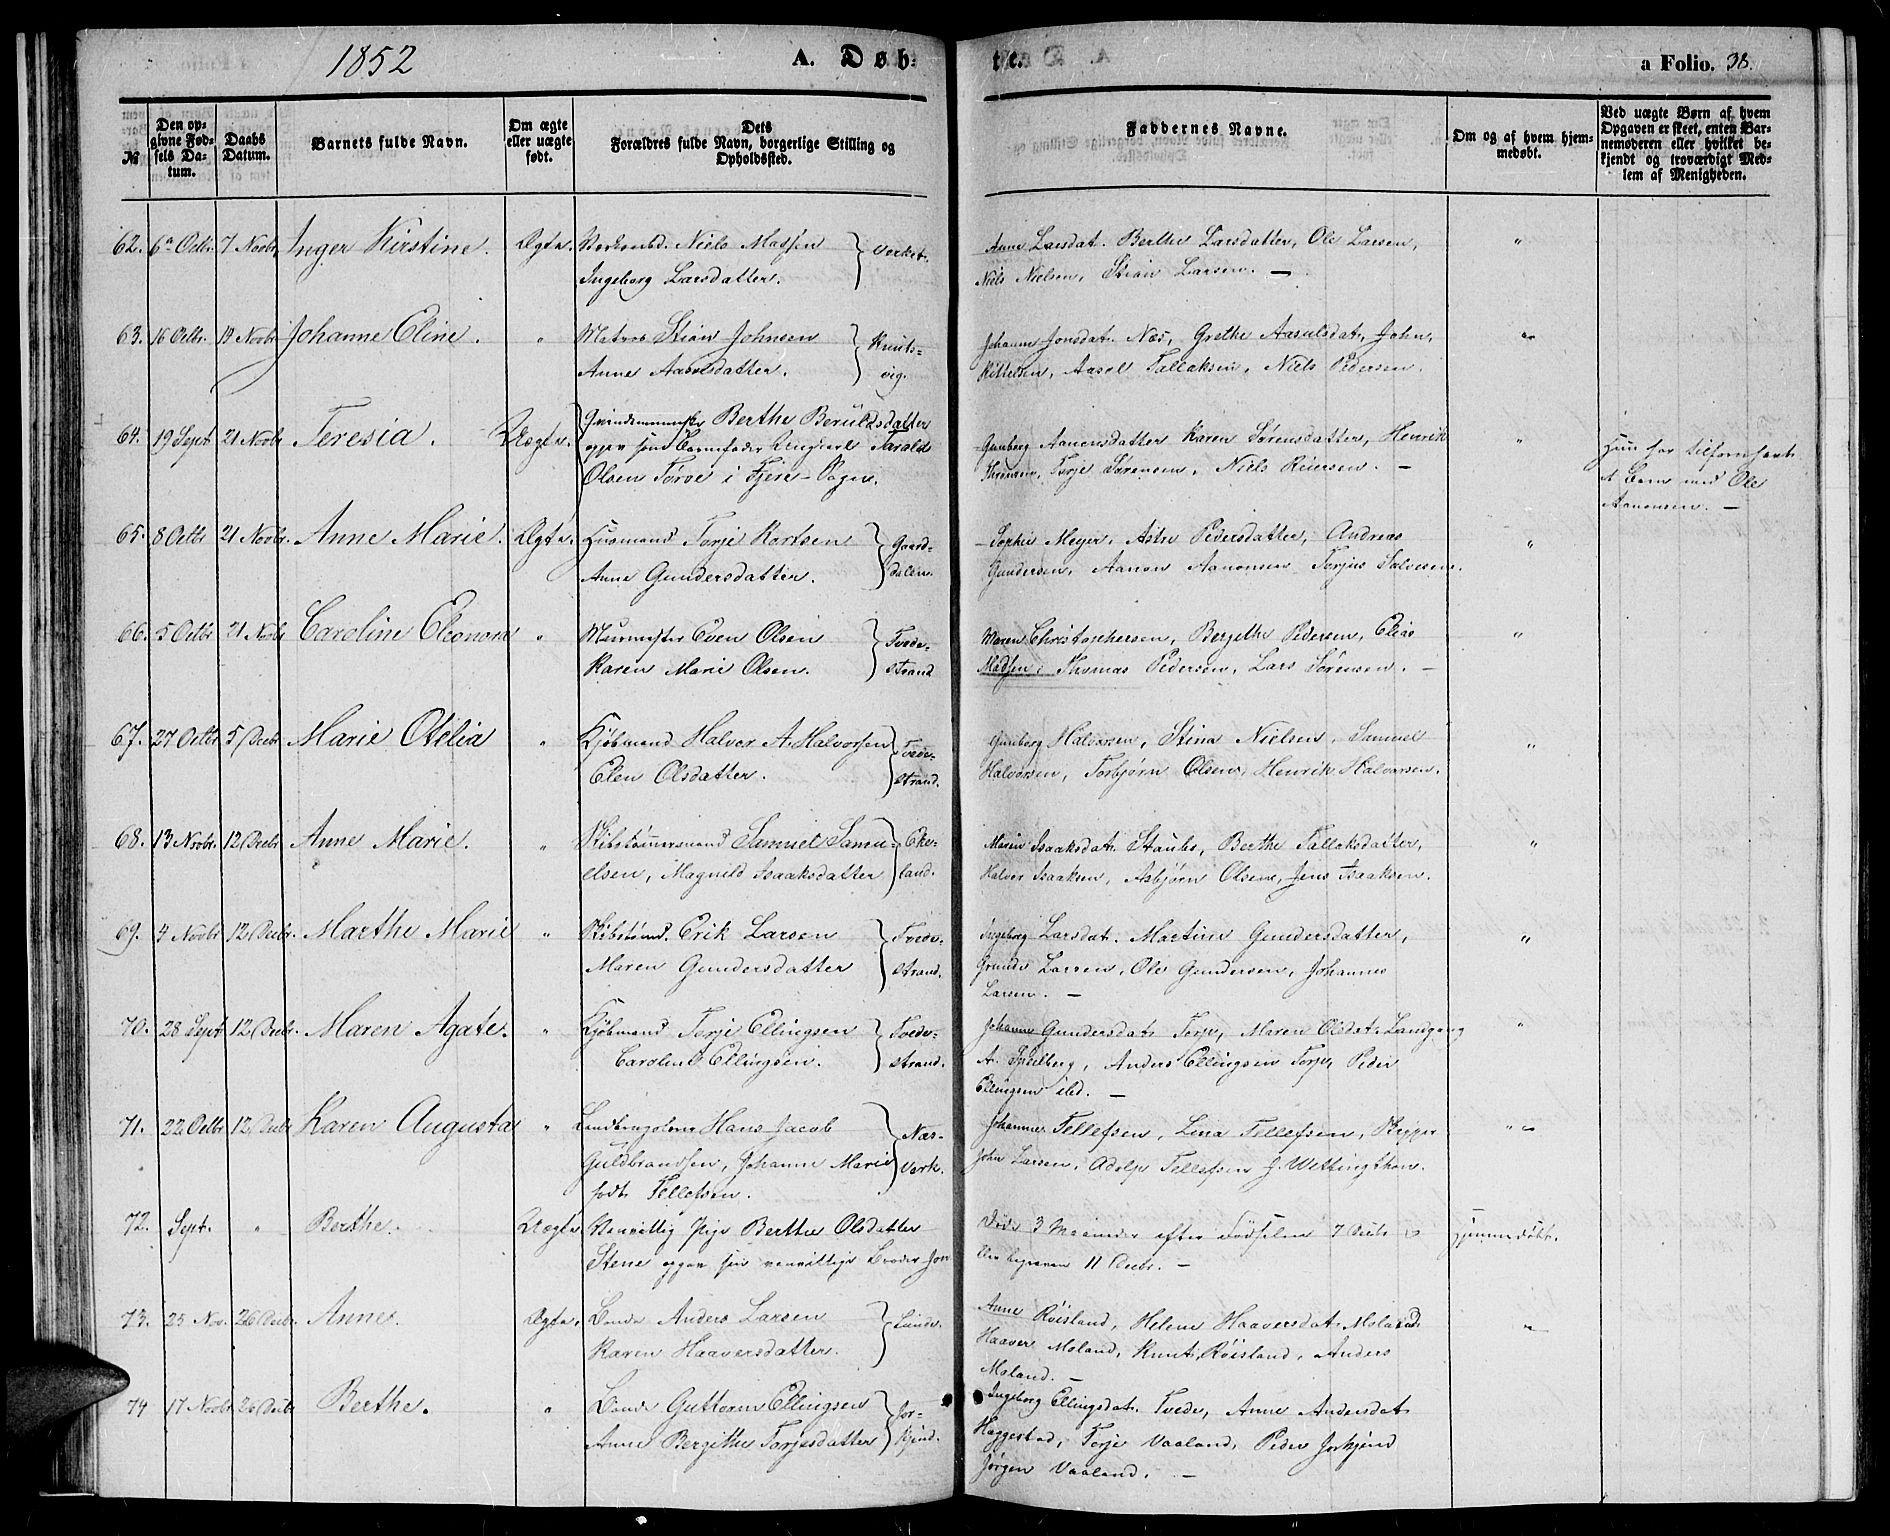 1852
A. Døb-
te.
a Folio. 38.
№
Den op-
givne Fød-
sels Da-
tum.
Daabs
Datum.
Barnets fulde Navn.
Om ægte
eller uægte
født.
Dets
Forældres fulde Navn, borgerlige Stilling og
Opholdssted.
Faddernes Navne.
Om og af hvem hjem-
medøbt.
Ved uægte Børn af hvem
Opgaven er skeet, enten Bar-
nemoderen eller hvilket be-
kjendt og troværdigt Med-
lem af Menigheden.
62. 6 Octbr. 7 Novbr. Inger Kirstine. Ægte. Niels Massen Verket.
Ingeborg Larsdatter.
Anne Larsdat. Berthe Larsdatter, Ole Larsen, "
Niels Nielsen, Stian Larsen. —
63. 16 Octbr. 19 Novbr Johanne Eline. " Matros Stian Johnsen Knuts-
Anne Aasulsdatter. vig.
Johanne Jonsdat. Næs, Grethe Aasulsdat, John,
Kittelsen, Aasol Tallaksen, Niels Pedersen.
64. 19 Sept 21 Novbr Teresia. Uægte. Qvindemenneske Berthe Beruldsdatter
opgav som Barnefader Ungkarl Tarald
Olsen Torve i Fjere-Sogn.
Gunborg Aanonsdatter Karen Sørensdatter, Henrik "
Thronsen, Torje Sørensen, Niels Reiersen. —
Hun har tilforn havt
et Barn med Ole
Aanonsen. —
65. 8 Octbr 21 Novbr. Anne Marie. Ægte. Husmand Torje Kortsen Gaard-
Anne Gundersdatter. dalen.
Sophie Meyer, Astri Pedersdatter, Andreas "
Gundersen, Aanon Aanonsen Torjus Salvesen.
66. 5 Octbr 21 Novbr Caroline Eleonore " Muurmester Even Olsen Tvede-
Karen Marie Olsen. strand
Maren Christophersen, Bergithe Pedersen, Elias "
Madsen, Thomas Pedersen, Lars Sørensen. —
67. 27 Octbr 5 Decbr Marie Otelia " Kjøbmand Halvor A. Halvorsen Tvede-
Elen Olsdatter. strand.
Gunborg Halvorsen, Stina Nielsen, Samuel "
Halvorsen, Torbjørn Olsen, Henrik Halvorsen.
68. 13 Novbr. 12 Decbr Anne Marie. " Skibstømmermand Samuel Samu- Eke-
elsen, Magnild Isaaksdatter land.
Maren Isaaksdat. Staubø, Berthe Tallaksdatter, "
Halvor Isaaksen, Asbjørn Olsen, Jens Isaaksen.
69. 4 Novbr 12 Decbr. Marthe Marie " Skibstømd. Erik Larsen Tvede-
Maren Gundersdatter strand.
Ingeborg Larsdat. Martine Gundersdatter, "
Larsen, Ole Gundersen, Johannes
Larsen. —
70. 28 Sept 12 Decbr. Maren Agate. " Kjøbmand Torje Ellingsen Tvede-
Caroline Ellingsen. strand.
Johanne Gundersdat. Torp, Maren Olsdat. Landgang "
A. Spielberg, Anders Ellingsen Torp, Peder
Ellingsen ibd. —
71. 22 Octbr 12 Decbr Karen Augusta " Hans Jacob Næs-
Guldbrandsen, Johanne Marie Værk.
født Tellefsen.
Johanne Tellefsen, Lina Tellefsen, Skipper "
John Larsen, Adolp Tellefsen J. Wettingthon.
72. Sept. " Berthe. Uægte. Vanvittig Pige Berthe Olsdatter
Stene opgav sin vanvittige Broder Jon
Døde 3 Maaneder efter Fødselen 7 Decbr Hjemmedøbt.
begraven 11 Decbr. —
73. 25 Nov. 26 Decbr. Anne. Ægte. Bonde Anders Larsen Lunde.
Karen Haaversdatter.
Anne Røisland, Helene Haaversdat. Moland
Haaver Moland, Knut Røisland, Anders
Moland. —
74 17 Novbr 26 Decbr Berthe. " Bonde Guttorm Ellingsen Jor-
Anne Bergithe Torjesdatter kjend.
Ingeborg Ellingsdat. Tvede, Anne Andersdat
Haggestad, Torje Vaaland, Peder Jorkjend
Jørgen Vaaland. —